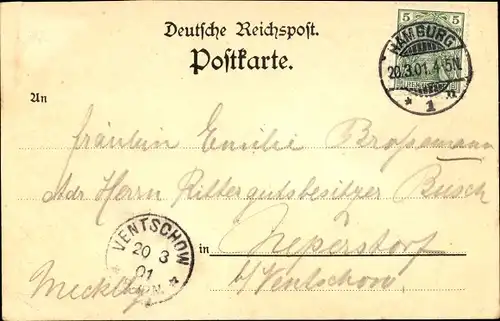 Deutsche Reichspost.
Postkarte.
5
HAMBURG
20.3.01.4-5N.
* 1 n
An
Fräulein Emilie
Adr Herrn Rittergutsbesitzer Busch
in Neperstorf
b/Ventschow
Mecklbg
VENTSCHOW
20 3
01